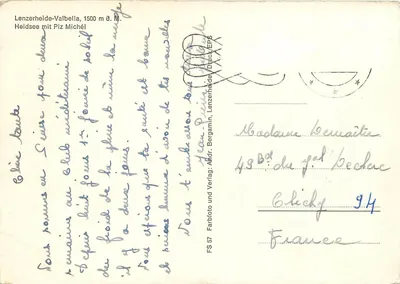 Lenzerheide-Valbella, 1500 m ü. M.
Heidsee mit Piz Michél
Chère tante
Nous sommes en Suisse pour deux
semaines au Club méditerranée
Depuis huit jours 1 journée de soleil
du froid de la pluie et même la neige
il y a deux jours.
Nous espérons que ta santé est bonne
et serions heureux d'avoir de tes nouvelles
Nous t'embrassons
Jean-Pierre
FS 57 Farbfoto und Verlag: Andr. Bergamin, Lenzerheide
Madame Lemaître
49 Bd du gal Leclerc
Clichy 94
France